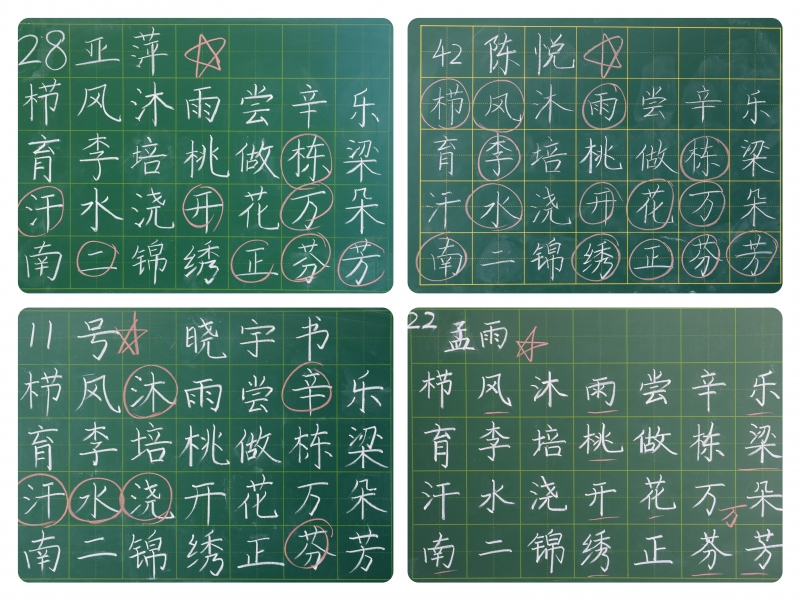 28 亚萍
栉风沐雨尝辛乐
育李培桃做栋梁
汗水浇开花万朵
南二锦绣正芬芳
42 陈悦
栉风沐雨尝辛乐
育李培桃做栋梁
汗水浇开花万朵
南二锦绣正芬芳
11号 晓宇书
栉风沐雨尝辛乐
育李培桃做栋梁
汗水浇开花万朵
南二锦绣正芬芳
22 孟雨
栉风沐雨尝辛乐
育李培桃做栋梁
汗水浇开花万朵
万
南二锦绣正芬芳